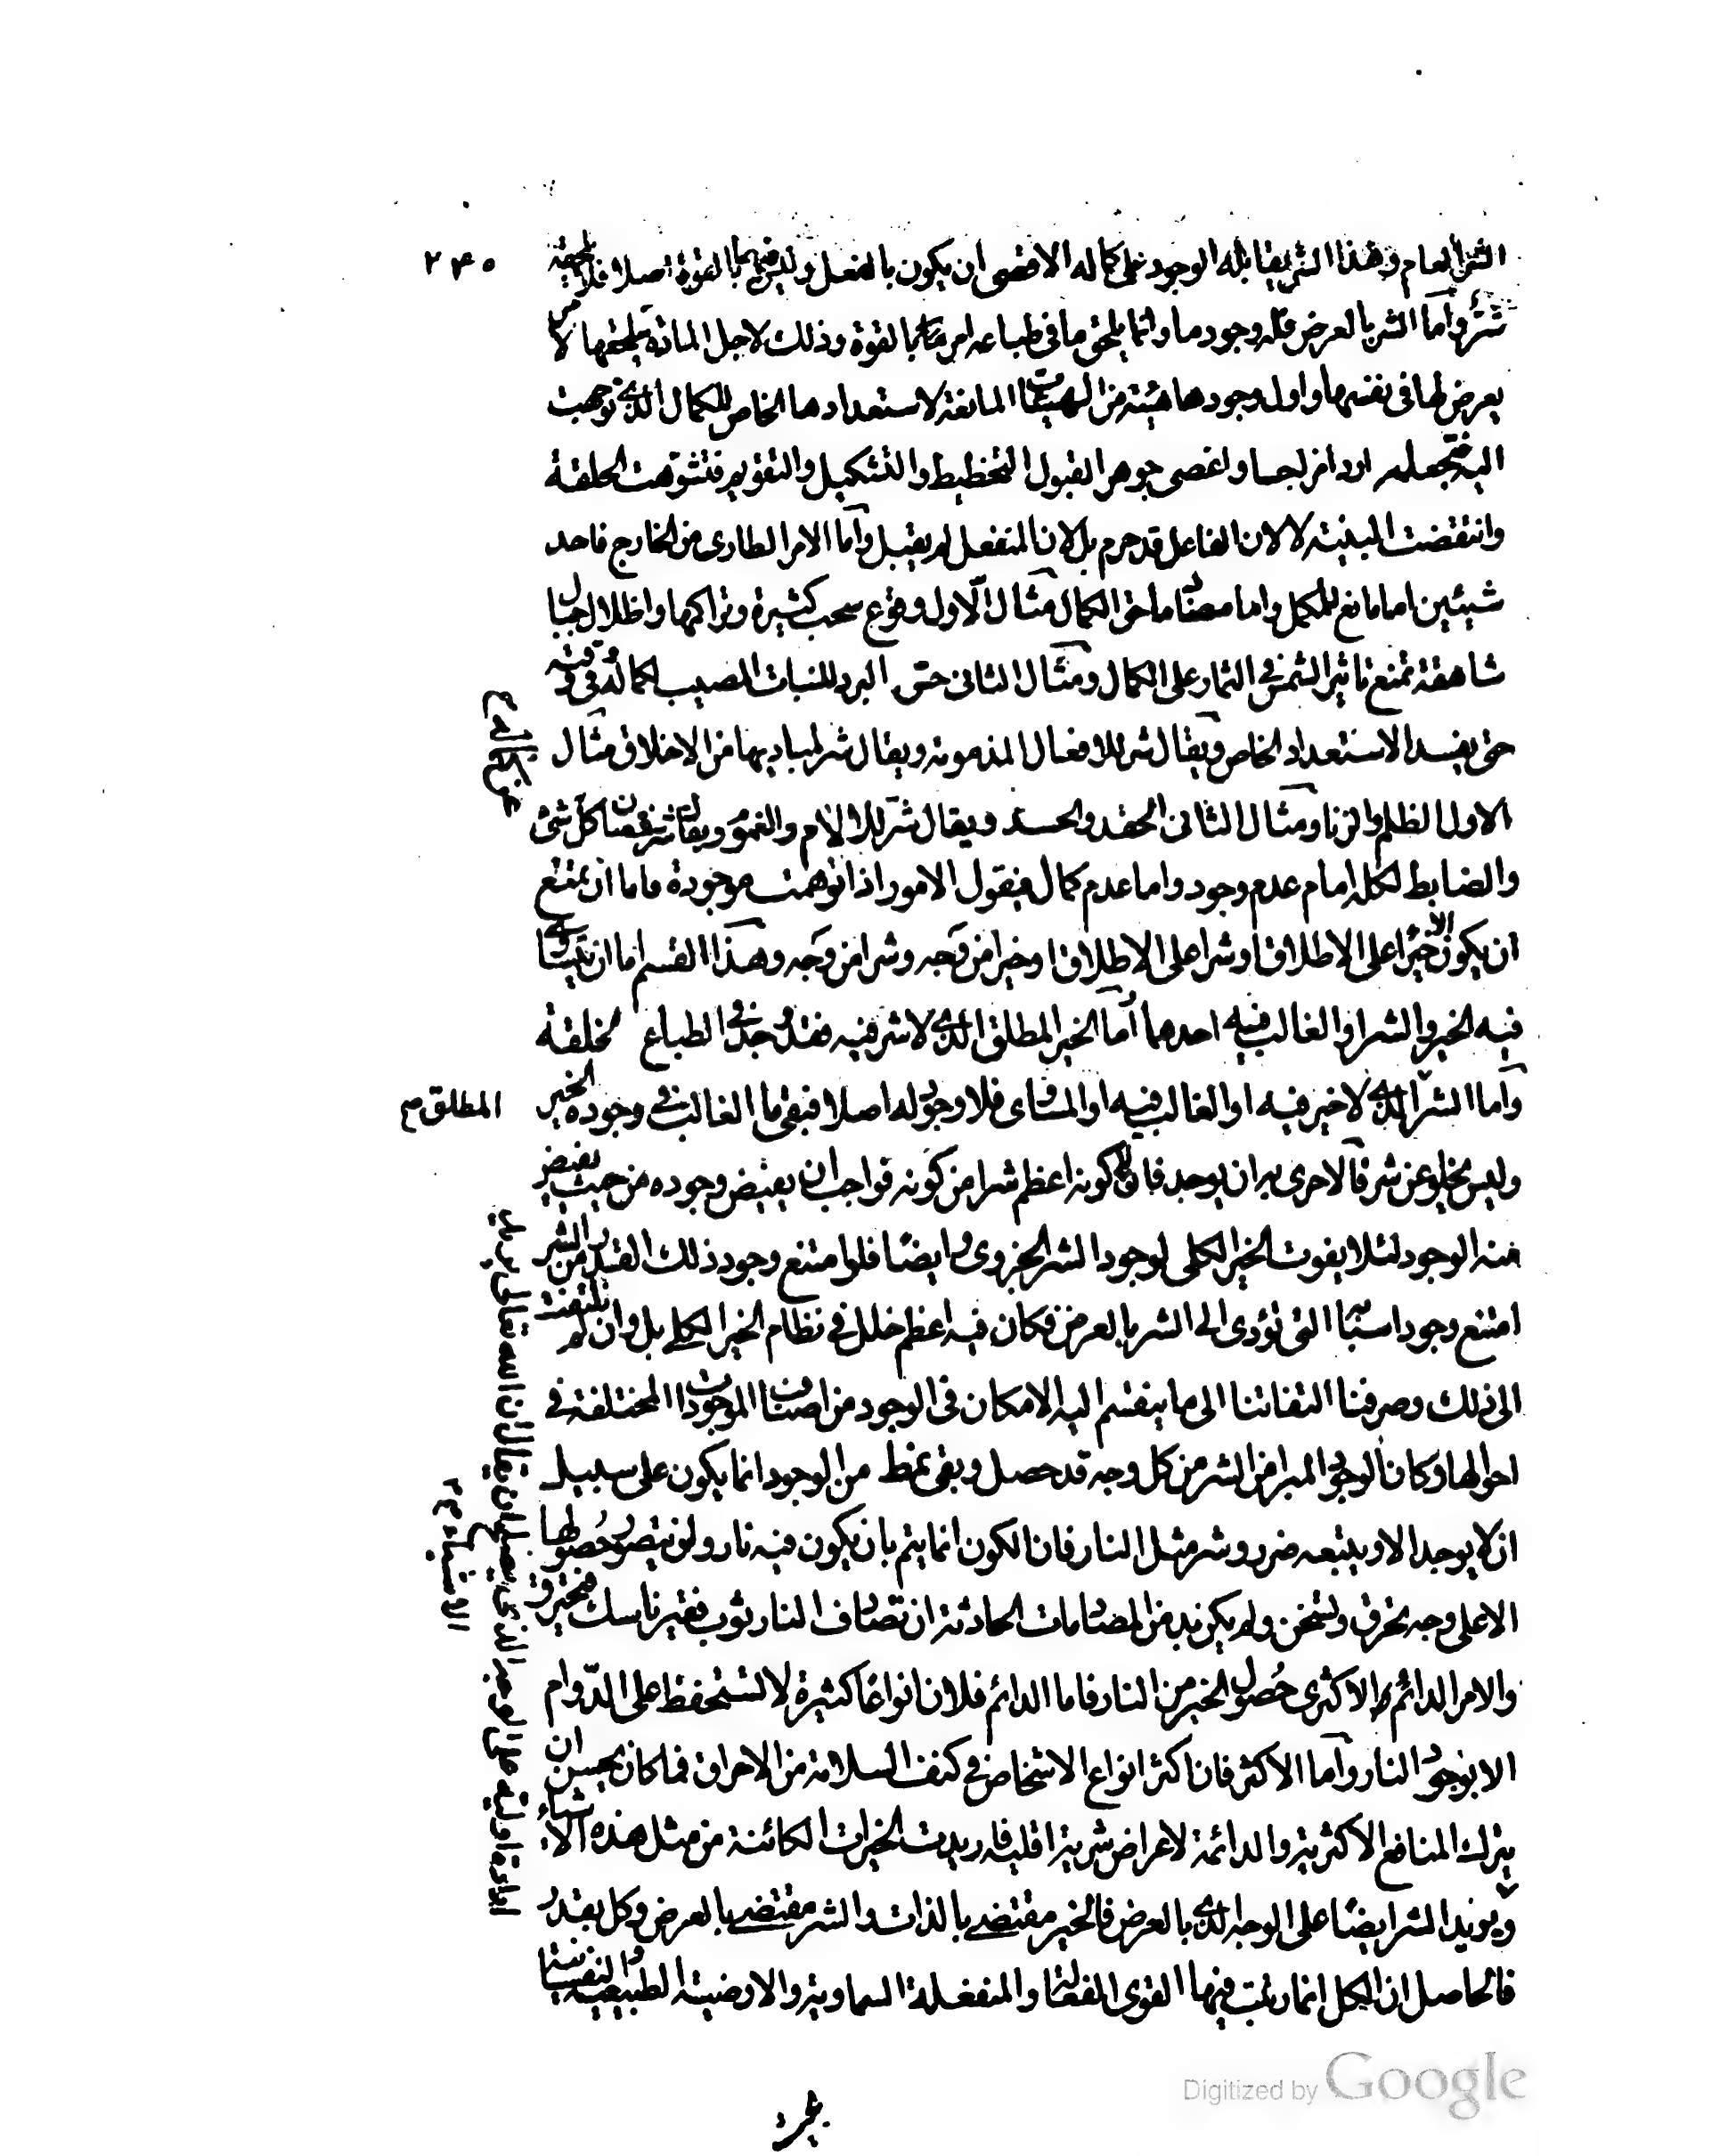 الشر العام وهذا الشر يقابله الوجود على كماله الاقصى ان يكون بالفعل وليس فيهما بالقوة اصلا فلا يلحقه
٢۴٥
شر واما الشر بالعرض فله وجود ما وانما يلحق ما في طباعه امر ما بالقوة وذلك لاجل المادة يلحقها لامر
يعرض لها في نفسها واول وجودها هيئة من الهيئات المانعة لاستعدادها الخاص للكمال الذي توجهت
اليه فتجعله اردا مزاجا واعصى جوهرا لقبول التخطيط والتشكيل والتقويم فتشوهت الخلقة
وانتقضت البنية لا لان الفاعل قد حرم بل لان المنفعل لم يقبل واما الامر الطارى من الخارج فاحد
شيئين اما مانع للمكمل واما مضاد ماحق الكمال مثال الاول وقوع سحب كثيرة وتراكمها واظلال جبال
شاهقة تمنع تاثير الشمس في الثمار على الكمال ومثال الثاني حبس البرد للنبات المصيب لكماله في وقته
حتى يفسد الاستعداد الخاص ويقال شر للافعال المذمومة ويقال شر لمباديها من الاخلاق مثال
الاول الظلم والزنا ومثال الثاني الحقد والحسد ويقال شر للالام والغموم ويقال شر لنقصان كل شئ
عن كماله
والضابط لكله اما عدم وجود واما عدم كمال فيقول الامور اذا توهمت موجودة فاما ان يمتنع
ان يكون الا خيرا على الاطلاق او شرا على الاطلاق او خيرا من وجه وشرا من وجه وهذا القسم اما ان يتساوى
فيه الخير والشر او الغالب فيه احدهما اما الخير المطلق الذي لا شر فيه فقد وجد في الطباع لخلقة
واما الشر الذي لا خير فيه او الغالب فيه او المساوى فلا وجود له اصلا فبقى ما الغالب في وجوده الخير
المطلق
وليس يخلو عن شر فالاحرى به ان يوجد فان لا كونه اعظم شرا من كونه فواجب ان يفيض وجوده من حيث يفيض
منه الوجود لئلا يفوت الخير الكلى لوجود الشر الجزوى وايضا فلو امتنع وجود ذلك القدر من الشر
امتنع وجود اسبابه التى تؤدى الى الشر بالعرض فكان فيه اعظم خلل في نظام الخير الكلي بل وان لم نلتفت
الى ذلك وصرفنا التفاتنا الى ما ينقسم اليه الامكان في الوجود من اصناف الموجودات المختلفة في
احوالها وكان الوجود المبرا من الشر من كل وجه قد حصل وبقى نمط من الوجود انما يكون على سبيل
ان لا يوجد الا ويتبعه ضرر وشر مثل النار فان الكون انما يتم بان يكون فيه نار ولن يتصور حصولها
الا على وجه تحرق وتسخن ولم يكن بد من المصادمات الحادثة ان تصادف النار ثوب فقير ناسك فيحترق
والامر الدائم والاكثرى حصول الخير من النار فاما الدائم فلان انواعا كثيرة لا تستحفظ على الدوام
الا بوجود النار واما الاكثر فان اكثر انواع الاشخاص في كنف السلامة من الاحراق فما كان يحسن ان
يترك المنافع الاكثرية والدائمة لاعراض شرية اقلية فاريدت الخيرات الكائنة من مثل هذه الاشياء
ارادة اولية على الوجه الذي يصلح ان يقال ان الله تعالى يريد
الاشياء
ويريد الشر ايضا على الوجه الذي بالعرض فالخير مقتضى بالذات والشر مقتضى بالعرض وكل بقدر
فالحاصل ان الكل انما رتبت فيها القوى الفعالة والمنفعلة السماوية والارضية الطبيعية والنفسانية